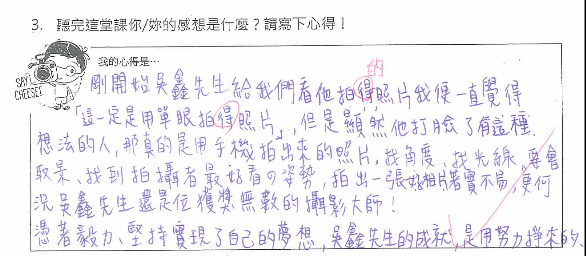 3. 聽完這堂課你/妳的感想是什麼？請寫下心得！
我的心得是…
SAY! CHEESE!
的
剛開始吳鑫先生給我們看他拍得照片我便一直覺得
「這一定是用單眼拍得照片」，但是顯然他打臉了有這種
想法的人，那真的是用手機拍出來的照片，找角度、找光線、要會
取景、找到拍攝者最好看の姿勢，拍出一張好相片著實不易，更何
況吳鑫先生還是位獲獎無數的攝影大師！
憑著毅力、堅持實現了自己的夢想，吳鑫先生的成就，是用努力掙來的、